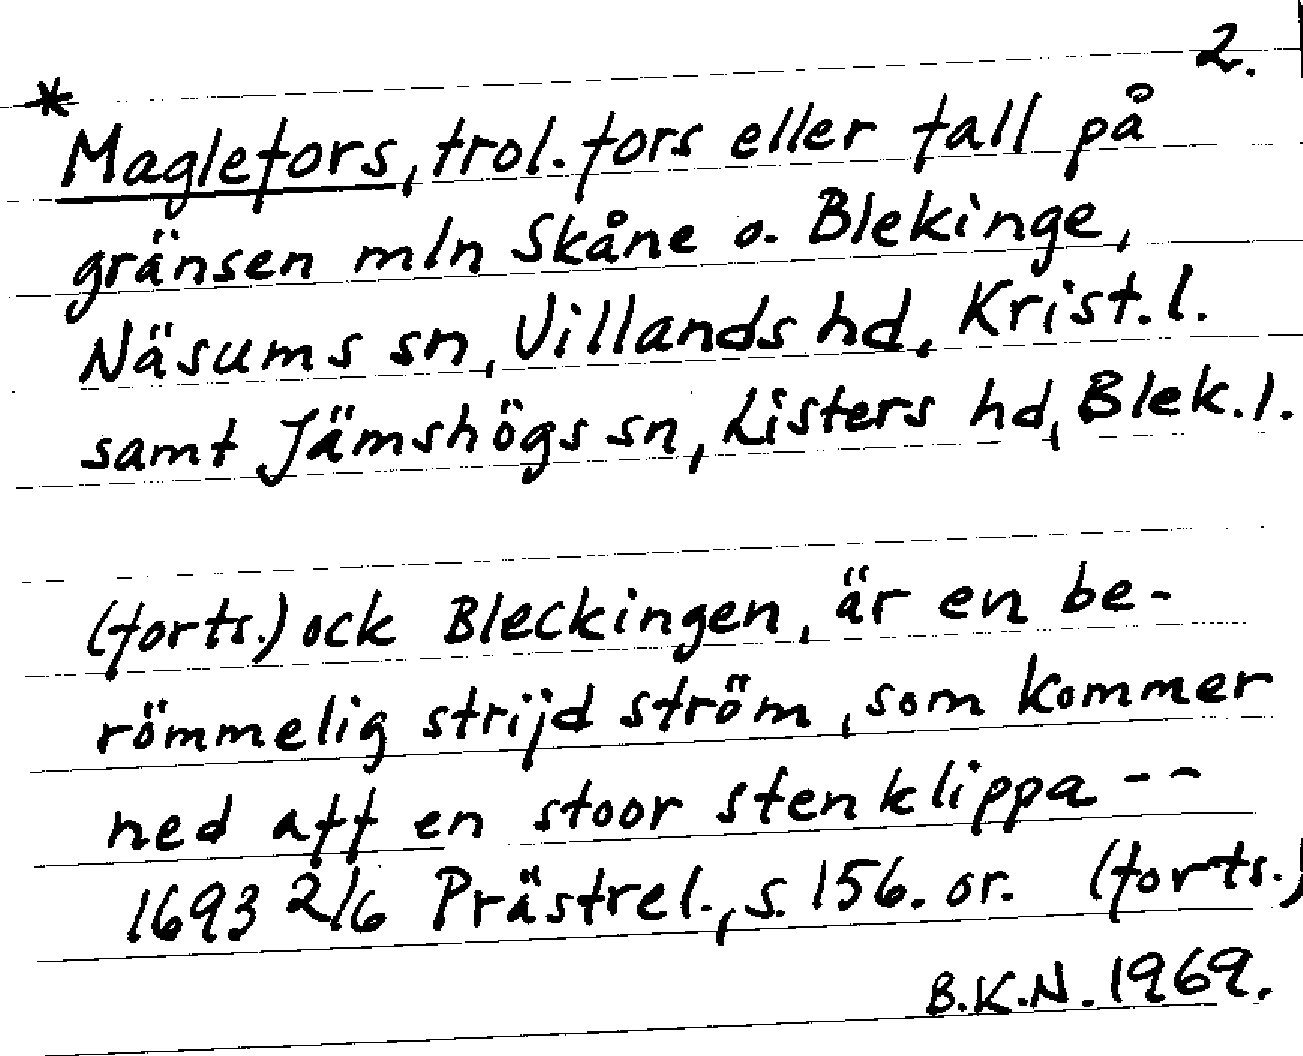 2.
*
Maglefors, trol. fors eller fall på
gränsen mln Skåne o. Blekinge,
Näsums sn, Villands hd, Krist. l.
samt Jämshögs sn, Listers hd, Blek. l.
(forts.) ock Bleckingen, är en be-
römmelig strijd ström, som kommer
ned aff en stoor stenklippa --
1693 2/6 Prästrel., s. 156. or. (forts.)
B.K.N. 1969.